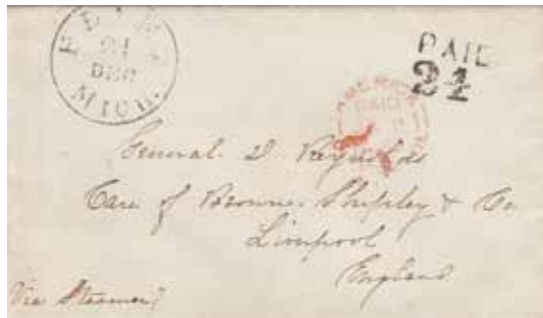 21
DEC
MICH.
PAID
24
AMERICA
PAID
General D Reynolds
Care of Browne, Shipley & Co
Liverpool
England
Via Steamer